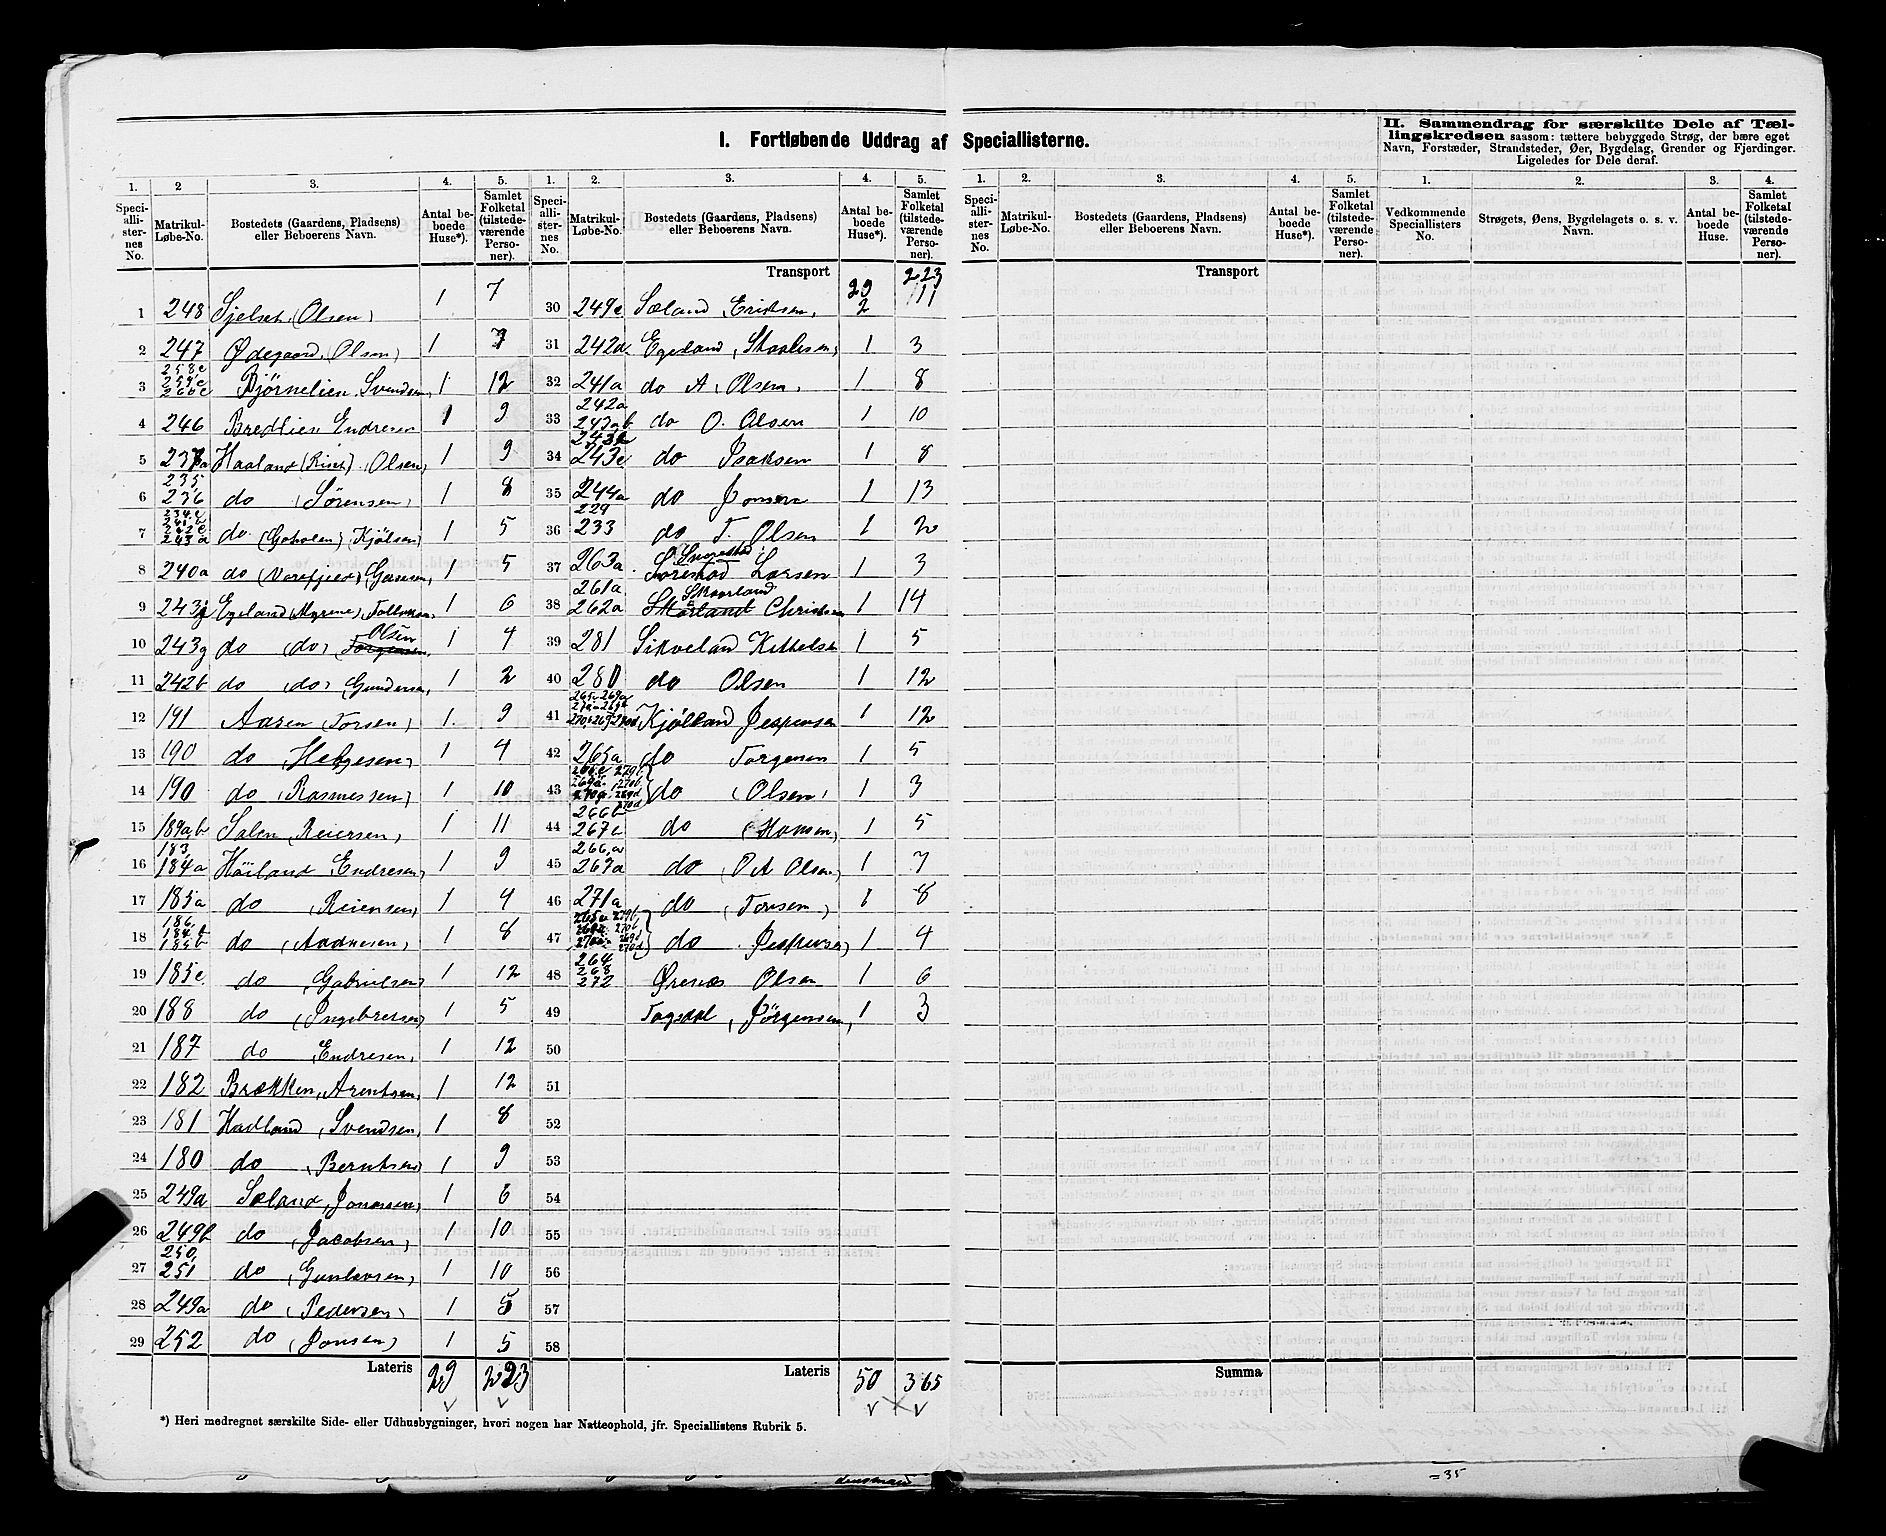 I. Fortløbende Uddrag af Speciallisterne.
II. Sammendrag for særskilte Dele af Tællingskredsen saasom: tættere bebyggede Strøg, der bære eget
Navn, Forstæder, Strandsteder, Øer, Bygdelag, Grender og Fjerdinger.
Ligeledes for Dele deraf.
1. 2 3. 4. 5. 1. 2. 3. 4. 5. 1. 2. 3. 4. 5. 1. 2. 3. 4.
Speciallisternes No. Matrikul-Løbe-No. Bostedets (Gaardens, Pladsens) eller Beboerens Navn. Antal beboede Huse*). Samlet Folketal (tilstedeværende Personer).
Speciallisternes No. Matrikul-Løbe-No. Bostedets (Gaardens, Pladsens) eller Beboerens Navn. Antal beboede Huse*). Samlet Folketal (tilstedeværende Personer).
Speciallisternes No. Matrikul-Løbe-No. Bostedets (Gaardens, Pladsens) eller Beboerens Navn. Antal beboede Huse*). Samlet Folketal (tilstedeværende Personer).
Vedkommende Speciallisters No. Strøgets, Øens, Bygdelagets o. s. v. Navn. Antal beboede Huse. Samlet Folketal (tilstedeværende Personer).
1 248 Sjelset (Olsen) 1 7
2 247 Ødegaard (Olsen) 1 7
3 258c 259c 260c Bjørnelien Svendsen 1 12
4 246 Bredlien Endresen 1 9
5 237a Haaland (Riset) Olsen 1 9
6 235 236 do (Sørensen) 1 8
7 234c 241b 242c 243a do (Goholen) (Kjølsen) 1 5
8 240a do (Varefjeld) (Gansen) 1 5
9 243 Egeland (Myrene) Tollaksen 1 6
10 243g do (do) Olsen 1 4
11 242b do (do) Gundersen 1 2
12 191 Aasen (Torsen) 1 9
13 190 do Helgesen 1 4
14 190 do (Rasmussen) 1 10
15 189a,b Salen Reiersen 1 11
16 183 184a Høiland Endresen 1 9
17 185a do (Reiersen) 1 4
18 186 184b 185b do (Aadnesen) 1 8
19 185c do Gabrielsen 1 12
20 188 do (Ingebretsen) 1 5
21 187 do Endresen 1 12
22 182 Brækken Arentsen 1 12
23 181 Hadland (Svendsen) 1 8
24 180 do (Berntsen) 1 9
25 249a Sæland (Jonassen) 1 6
26 249b do (Jacobsen) 1 10
27 250 251 do (Gunlavsen) 1 10
28 249a do (Pedersen) 1 5
29 252 do (Jonsen) 1 5
Lateris 29 223
Transport 29 223
30 249c Sæland Eriksen 2 11
31 242d Egeland (Staalesen) 1 3
32 241a do A (Olsen) 1 8
33 242a 243b do O. Olsen 1 10
34 243c do Isaksen 1 8
35 244a do Jonsen 1 13
36 229 233 do T. Olsen 1 2
37 263a Sørestad Larsen 1 3
38 261a 262a Skaarland Christensen 1 14
39 281 Sikveland Kittelsen 1 5
40 280 do Olsen 1 12
41 Kjølland Jespersen 1 12
42 265a do Torgersen 1 5
43 do (Olsen) 1 3
44 266b 267c do (Hansen) 1 5
45 266a 267a do (O A Olsen) 1 7
46 271a do (Torsen) 1 8
47 do Jespersen 1 4
48 264 268 272 Øresnes Olsen 1 6
49 Togsdal (Jørgensen) 1 3
50
51
52
53
54
55
56
57
58
Lateris 50 365
Transport
Summa
*) Heri medregnet særskilte Side- eller Udhusbygninger, hvori nogen har Natteophold, jfr. Speciallistens Rubrik 5.
Lensmand
=35